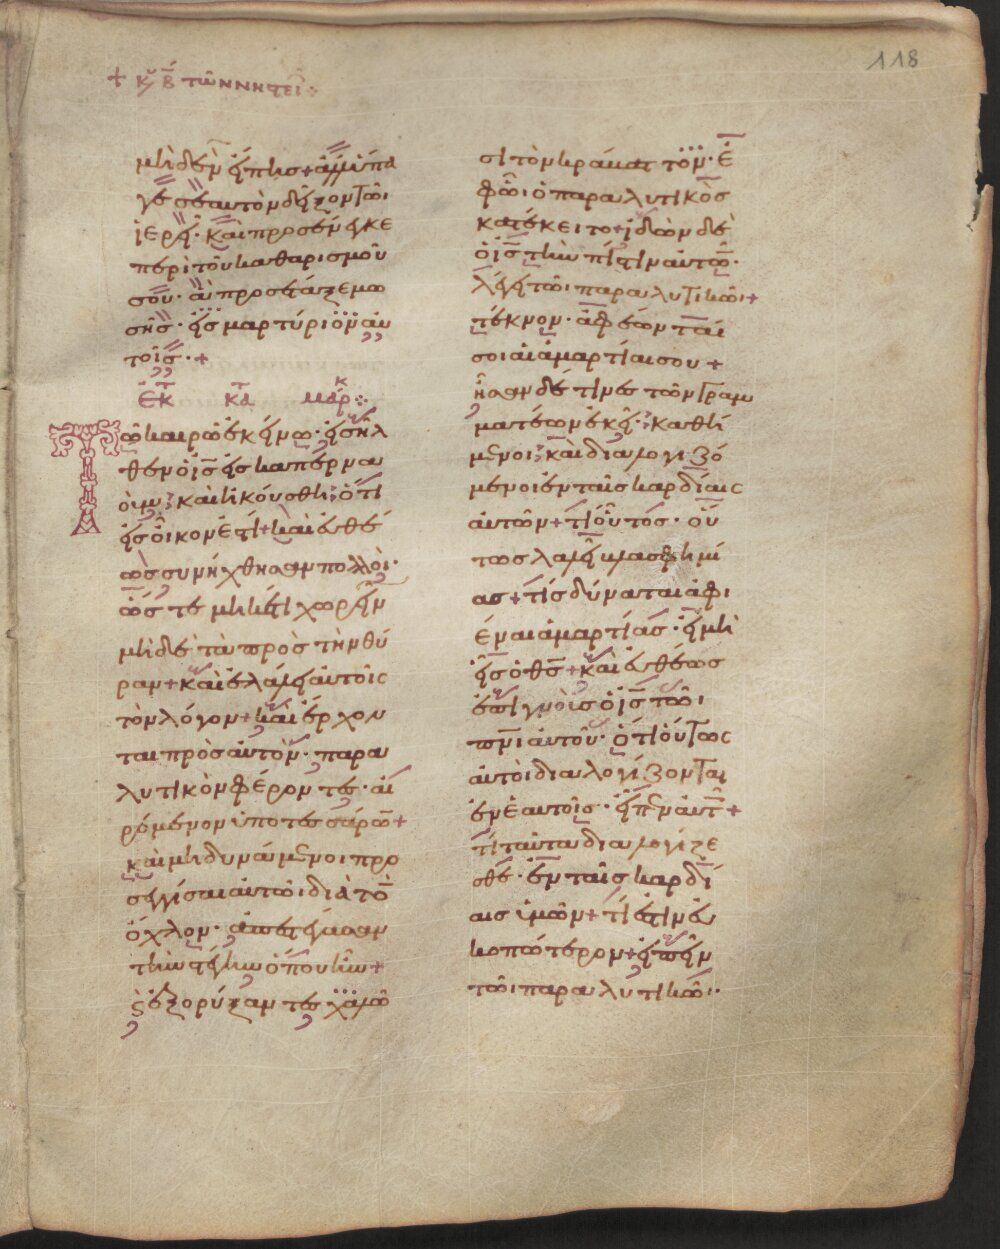 118
+ κυ β τῶν νηστει
μηδεν εἴπῃς + ἀλλ ὕπα
γε σεαυτὸν δεῖξον τῶι
ἱερεῖ· καὶ προσένεγκε
περὶ τοῦ καθαρισμοῦ
σου· ἃ προσέταξε μω
σῆς· εἰς μαρτύριον αυ
τοῖς· +
ἐκ τ κατ μάρκ
Τῶι καιρῶι ἐκείνω· εἰσῆλ
θεν ὁ ις εἰς καπερνα
ούμ· καὶ ἠκούσθη· ὅτι
εἰς οἶκον ἐστί + καὶ ἐυθέ
ως συνήχθησαν πολλοί·
ὥστε μηκέτι χωρεῖν
μηδὲ τὰ πρὸς τὴν θύ
ραν + καὶ ἐλάλει αὐτοῖς
τὸν λόγον + καὶ ἔρχον
ται πρὸς αὐτὸν· παρα
λυτικὸν φέροντες· αἰ
ρόμενον ὑπο τεσσάρων +
καὶ μὴ δυνάμενοι προ
σεγγίσαι αὐτῶι διὰ τὸν
ὄχλον· ἀπεστέγασαν
τὴν στέγην ὅπου ἦν +
ϛ ἐξορύξαντες χαλῶ
σι τὸν κράβαττον· ἐ
φ ὧι ὁ παραλυτικὸς
κατέκειτο + ἰδὼν δὲ
ὁ ις τὴν πίστιν αὐτῶν·
λέγει τῶι παραλυτικῶι +
τέκνον· ἀφέωνται
σοι αἱ ἁμαρτίαι σου +
ἦσαν δέ τινες τῶν γραμ
ματέων ἐκεῖ· καθή
μενοι· καὶ διαλογιζό
μενοι ἐν ταῖς καρδίαις
αὐτῶν + τί οὗτος· οὕ
τως λαλεῖ βλασφημί
ας + τίς δύναται ἀφι
έναι ἁμαρτίας· εἰ μὴ
εἷς ὁ θς + καὶ ἐυθέως
ἐπιγνοὺς ὁ ις τῶι
πνι αὐτοῦ· ὅτι οὕτως
αὐτοὶ διαλογίζονται
ἐν ἑαυτοῖς· εἶπεν αὐτοῖς +
τί ταῦτα διαλογίζε
σθε· ἐν ταῖς καρδί
αις ὑμῶν + τί ἐστιν ἐυ
κοπώτερον + εἰπεῖν
τῶι παραλυτικῶι··